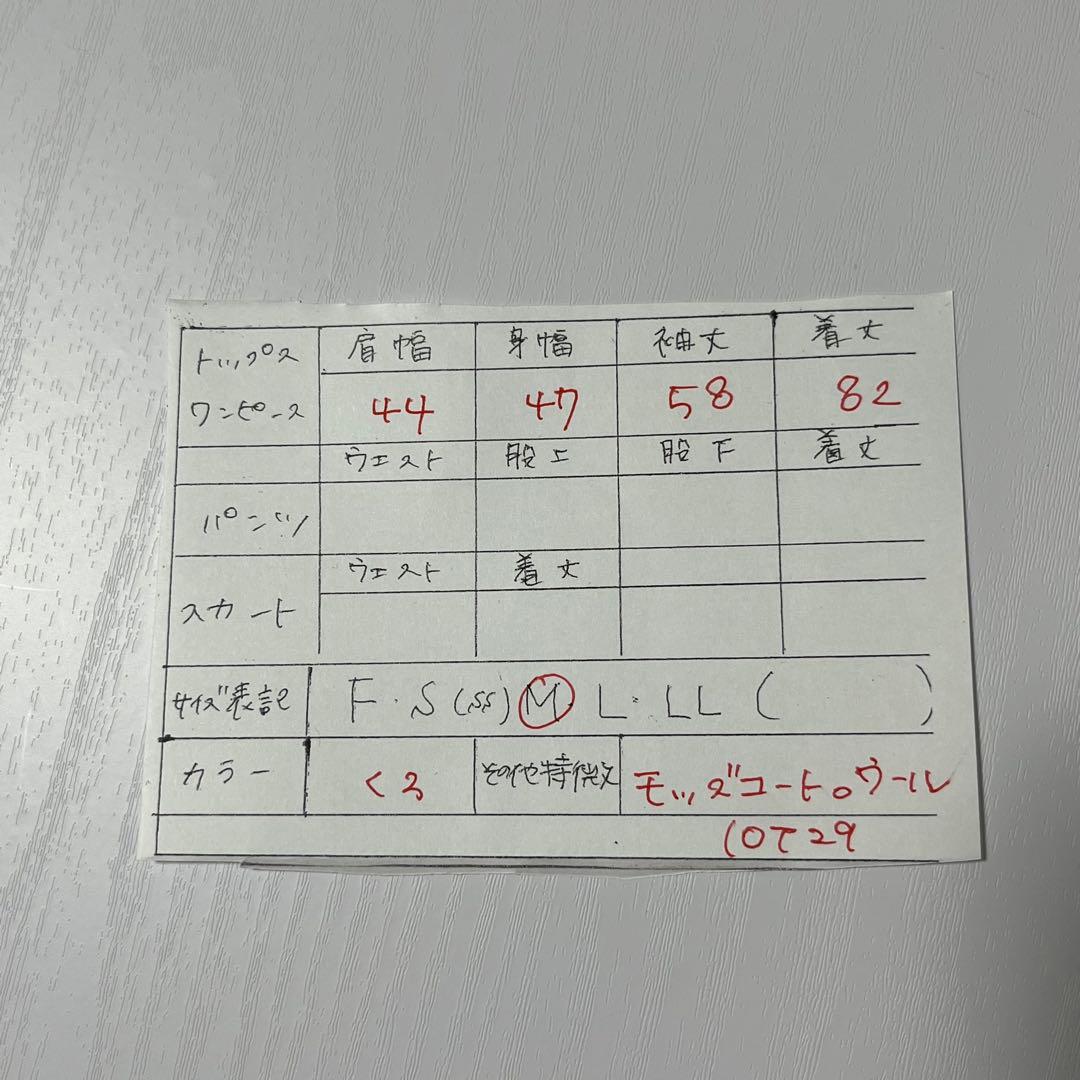 トップス 肩幅 身幅 袖丈 着丈
ワンピース 44 47 58 82
ウエスト 股上 股下 着丈
パンツ
ウエスト 着丈
スカート
サイズ表記 F・S(SS) M L・LL ( )
カラー くろ その他特徴 モッズコート。ウール
10T29